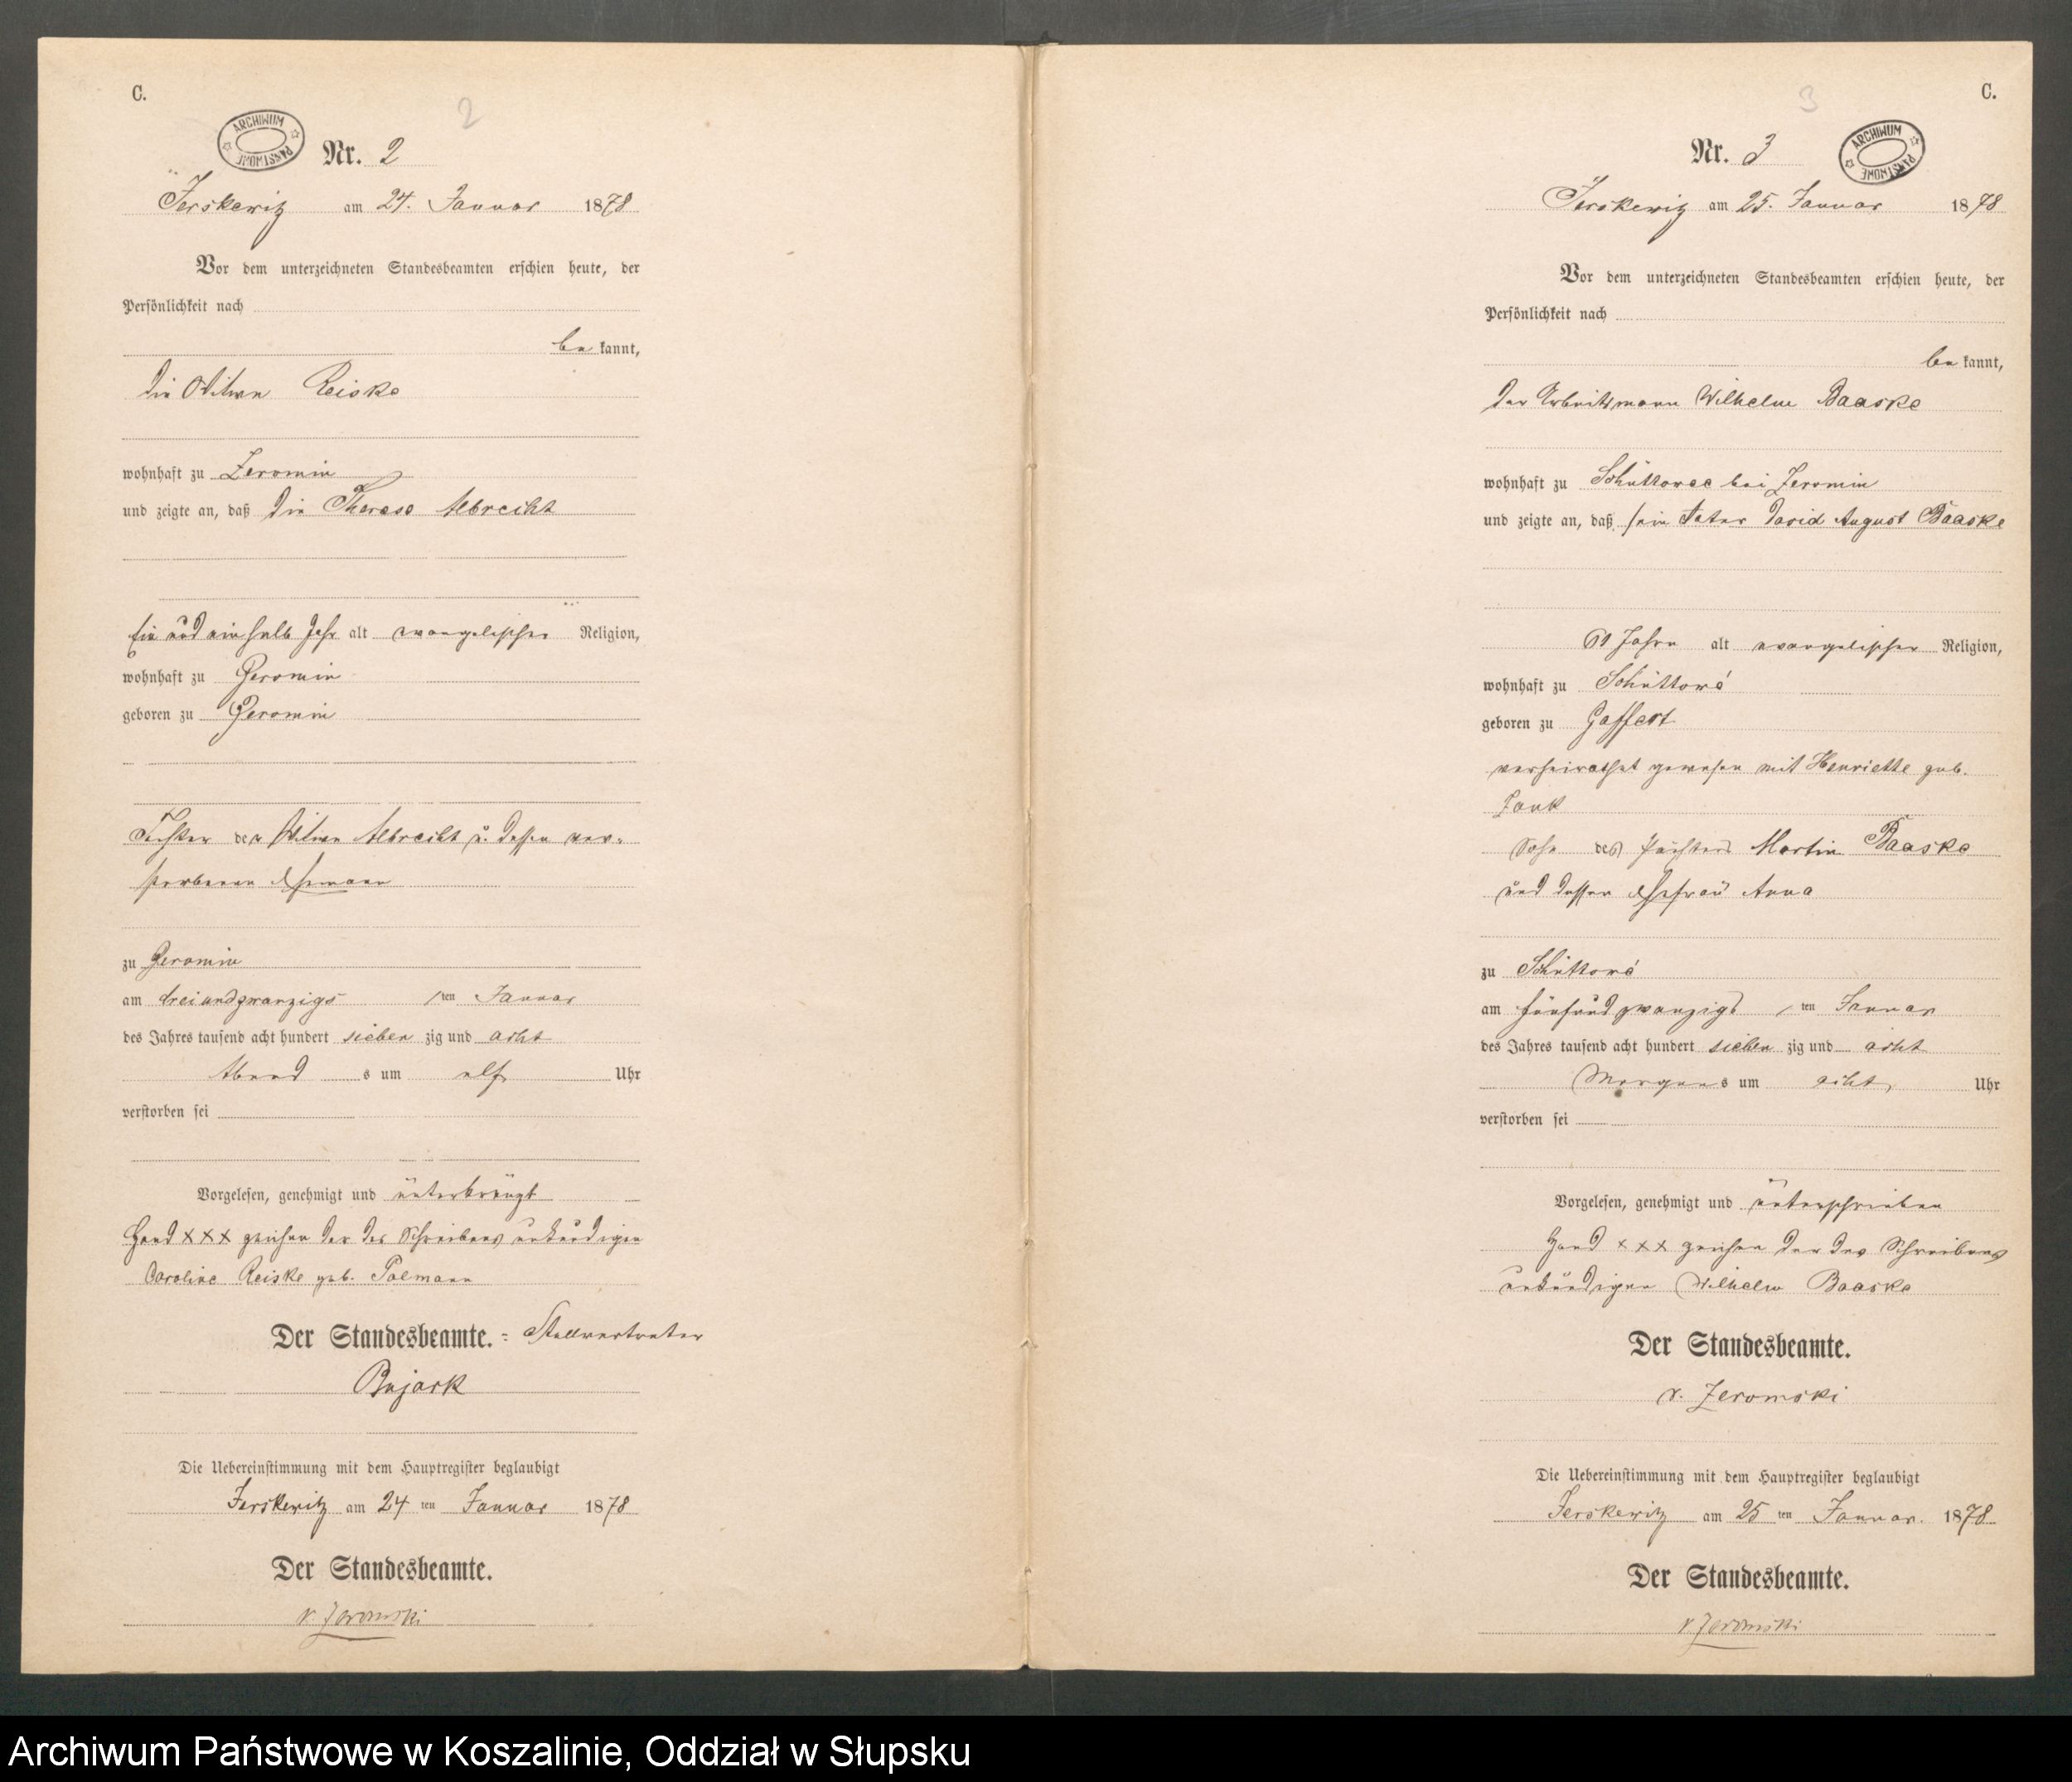 C.
2
ARCHIWUM PAŃSTWOWE
Nr. 2
Jerskewitz am 24. Januar 1878
Vor dem unterzeichneten Standesbeamten erschien heute, der
Persönlichkeit nach
be kannt,
die Witwe Reiske
wohnhaft zu Zeromin
und zeigte an, daß die Therese Albrecht
Ein und ein halb Jahr alt evangelischer Religion,
wohnhaft zu Geromin
geboren zu Geromin
Tochter der Witwe Albrecht u. dessen ver-
storbenen Ehemann
zu Geromin
am dreiundzwanzigs ten Januar
des Jahres tausend acht hundert sieben zig und acht
Abend s um elf Uhr
verstorben sei
Vorgelesen, genehmigt und unterkreuzt
Hand xxx zeichen der des Schreibens unkundigen
Caroline Reiske geb. Polmann
Der Standesbeamte. = Stellvertreter
Bujack
Die Uebereinstimmung mit dem Hauptregister beglaubigt
Jerskewitz am 24 ten Januar 1878
Der Standesbeamte.
v. Zeromski
C.
3
Nr. 3
ARCHIWUM PAŃSTWOWE
Jerskewitz am 25. Januar 1878
Vor dem unterzeichneten Standesbeamten erschien heute, der
Persönlichkeit nach
be kannt,
der Arbeitsmann Wilhelm Baaske
wohnhaft zu Schüttowee bei Zeromin
und zeigte an, daß sein Vater David August Baaske
61 Jahre alt evangelischer Religion,
wohnhaft zu Schüttowé
geboren zu Gaffert
verheirathet gewesen mit Henriette geb.
Jank
Sohn des Pächters Martin Baaske
und dessen Ehefrau Anna
zu Schüttowé
am fünfundzwanzigs ten Januar
des Jahres tausend acht hundert sieben zig und acht
Morgens um acht Uhr
verstorben sei
Vorgelesen, genehmigt und unterschrieben
Hand xxx zeichen der des Schreibens
unkundigen Wilhelm Baaske
Der Standesbeamte.
v. Zeromski
Die Uebereinstimmung mit dem Hauptregister beglaubigt
Jerskewitz am 25 ten Januar. 1878
Der Standesbeamte.
v Zeromski
Archiwum Państwowe w Koszalinie, Oddział w Słupsku